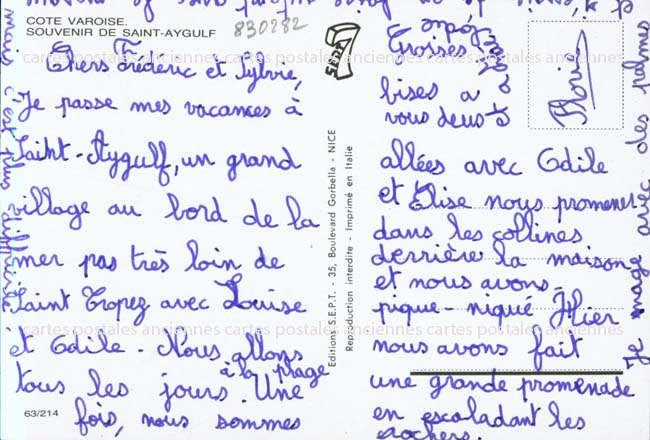 COTE VAROISE.
SOUVENIR DE SAINT-AYGULF
830282
Chers Frédéric et Sylvie,
Je passe mes vacances à
Saint-Aygulf, un grand
village au bord de la
mer pas très loin de
Saint Tropez avec Louise
et Odile. Nous allons
à la plage
tous les jours. Une
fois, nous sommes
63/214
Editions S.E.P.T. - 35, Boulevard Gorbella - NICE
Reproduction interdite - Imprimé en Italie
SEPT
7
allées avec Odile
et Elise nous promener
dans les collines
derrière la maison
et nous avons
pique-niqué. Hier
nous avons fait
une grande promenade
en escaladant les
rochers.
Je nage avec des palmes
mais c'est plus difficile
Grosses
bises à
vous deux
cartes postales anciennes cartes postales anciennes cartes postales anciennes
cartes postales anciennes cartes postales anciennes cartes postales anciennes